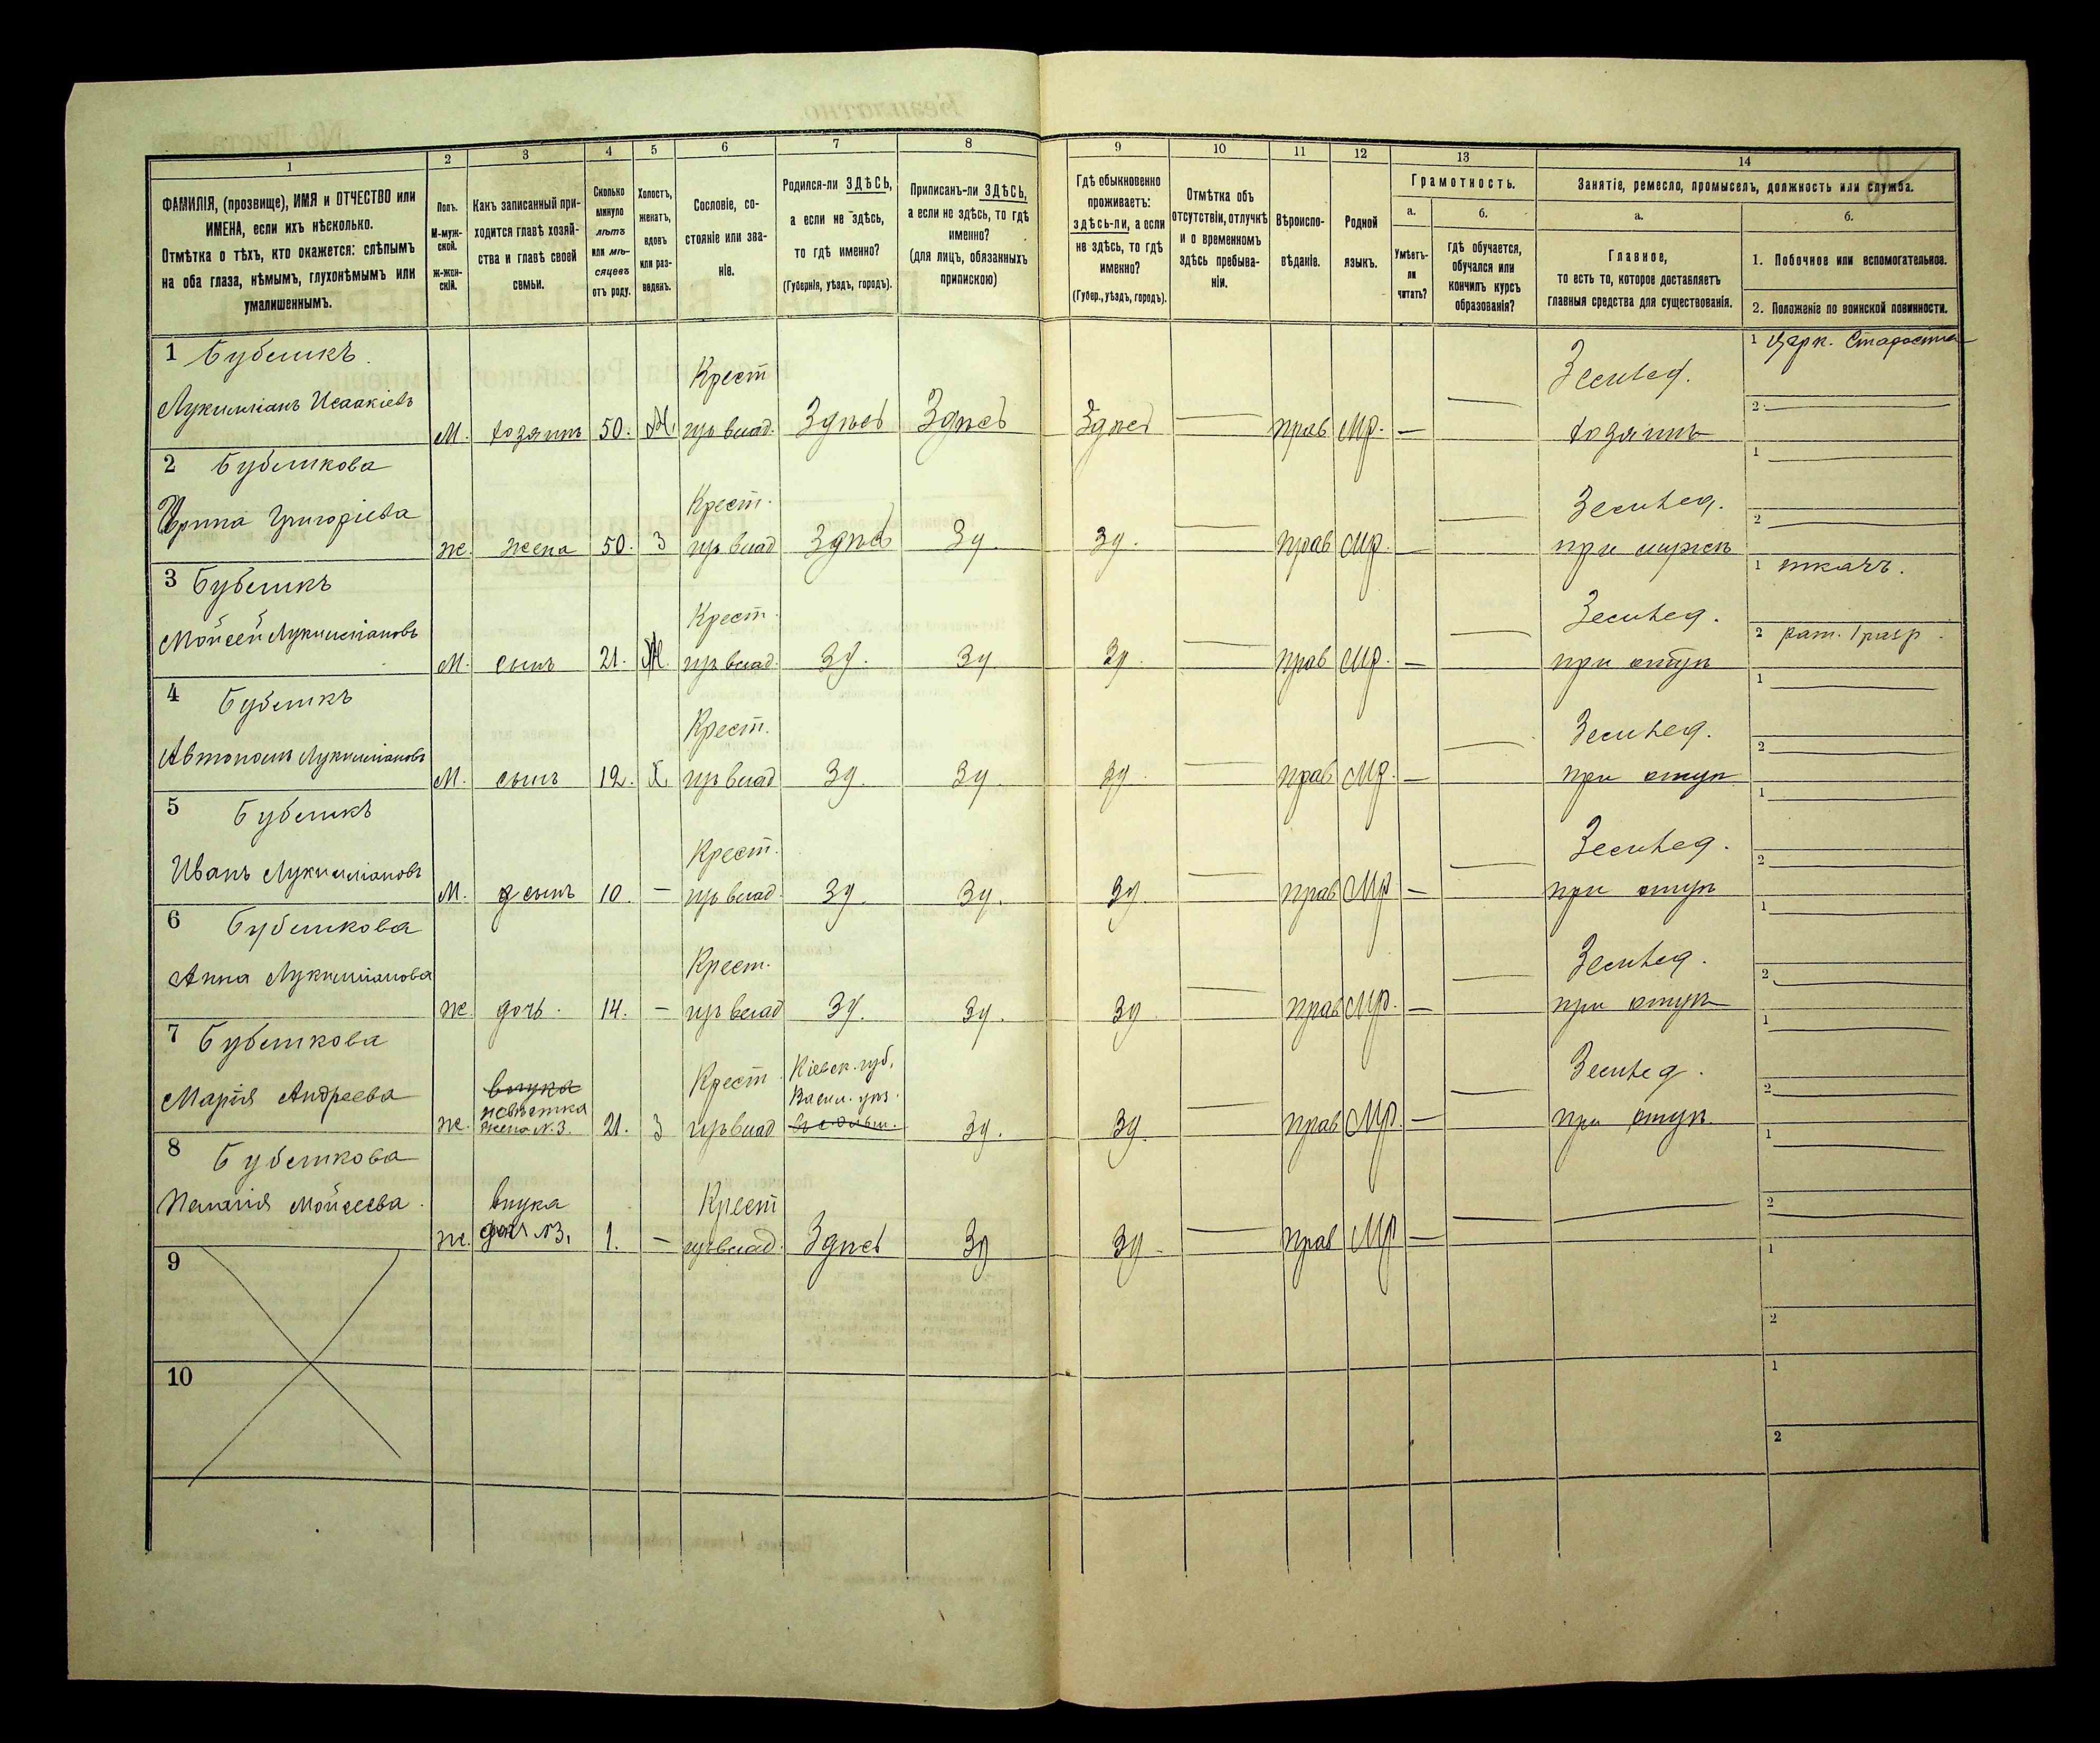 1 2 3 4 5 6 7 8 9 10 11 12 13 14
ФАМИЛІЯ, (прозвище), ИМЯ и ОТЧЕСТВО или
ИМЕНА, если ихъ нѣсколько.
Отмѣтка о тѣхъ, кто окажется: слѣпымъ
на оба глаза, нѣмымъ, глухонѣмымъ или
умалишеннымъ.
Полъ.
М-муж-
ской.
ж-жен-
скій.
Какъ записанный при-
ходится главѣ хозяй-
ства и главѣ своей
семьи.
Сколько
минуло
лѣтъ
или мѣ-
сяцевъ
отъ роду.
Холостъ,
женатъ,
вдовъ
или раз-
веденъ.
Сословіе, со-
стояніе или зва-
ніе.
Родился-ли ЗДѢСЬ,
а если не здѣсь,
то гдѣ именно?
(Губернія, уѣздъ, городъ).
Приписанъ-ли ЗДѢСЬ,
а если не здѣсь, то гдѣ
именно?
(для лицъ, обязанныхъ
припискою)
Гдѣ обыкновенно
проживаетъ:
здѣсь-ли, а если
не здѣсь, то гдѣ
именно?
(Губер., уѣздъ, городъ).
Отмѣтка объ
отсутствіи, отлучкѣ
и о временномъ
здѣсь пребыва-
ніи.
Вѣроиспо-
вѣданіе.
Родной
языкъ.
Грамотность.
а.
Умѣетъ-
ли
читать?
б.
гдѣ обучается,
обучался или
кончилъ курсъ
образованія?
Занятіе, ремесло, промыселъ, должность или служба.
а.
Главное,
то есть то, которое доставляетъ
главныя средства для существованія.
б.
1. Побочное или вспомогательное.
2. Положеніе по воинской повинности.
1 Бубликъ Крест Землед. 1 Церк. Староста
Лукилліанъ Исаакіевъ М. хозяинъ 50. Ж. Здѣсь Здѣсь Здѣсь — прав мр. — — хозяинъ 2 —
2 Бубликова Крест. Землед. 1 —
Ирина Григоріева ж. жена 50. З Здѣсь Зд. Зд. — прав мр. — — при мужѣ 2 —
3 Бубликъ Крест. Землед. 1 ткачъ.
Мойсей Лукилліановъ М. сынъ 21. Ж. Зд. Зд. Зд. — прав мр. — — при отцѣ 2 рат. 1 разр.
4 Бубликъ Крест. Землед. 1 —
Автономъ Лукилліановъ М. сынъ 12. Х. Зд. Зд. Зд. — прав мр. — — при отцѣ 2 —
5 Бубликъ Крест. Землед. 1 —
Иванъ Лукилліановъ М. сынъ 10 — Зд. Зд. Зд. — прав мр — — при отцѣ 2 —
6 Бубликова Крест. Землед. 1 —
Анна Лукилліанова ж. дочь. 14. — Зд. Зд. Зд — прав мр. — — при отцѣ 2 —
7 Бубликова внука Крест. Кіевск. губ. Землед. 1 —
Марія Андреева невѣстка Васил. уѣз.
ж. жена N. 3. 21. З Зд. Зд. — прав мр. — — при отцѣ 2 —
8 Бубликова внука Крест 1 —
Пелагія Мойсеева. ж. дочь N3. 1. — Здѣсь Зд Зд — прав мр — — — 2 —
9 1
2
10 1
2